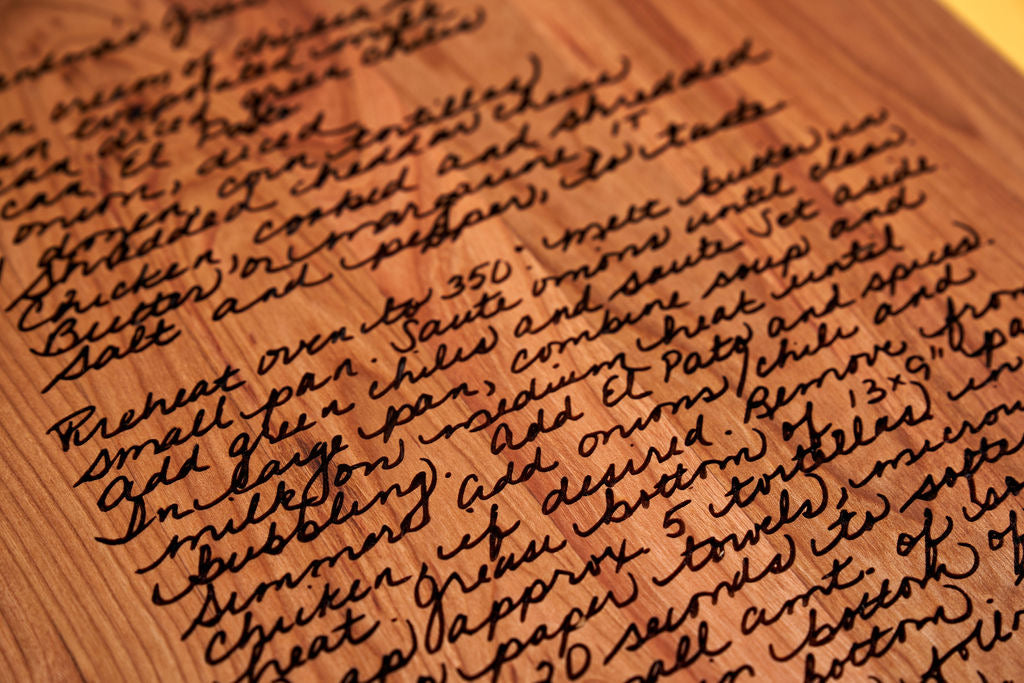 cream of chicken
evaporated milk
can diced green chiles
can El Pato
onion, diced
dozen corn tortillas
shredded cheddar cheese
chicken, cooked and shredded
Butter, or margarine, 1T
Salt and pepper, to taste
Preheat oven to 350°. melt butter in
small pan. Saute onions until clear.
Add green chiles and saute. Set aside
In large pan, combine soup and
milk on medium heat until
bubbling. Add El Pato and spices.
Simmer. Add onions/chili and
chicken, if desired. Remove from
heat. Grease bottom of 13x9" pa
approx. 5 tortillas in
paper towels, microw
20 seconds to softe
small amt. of
bottom of
bottom.